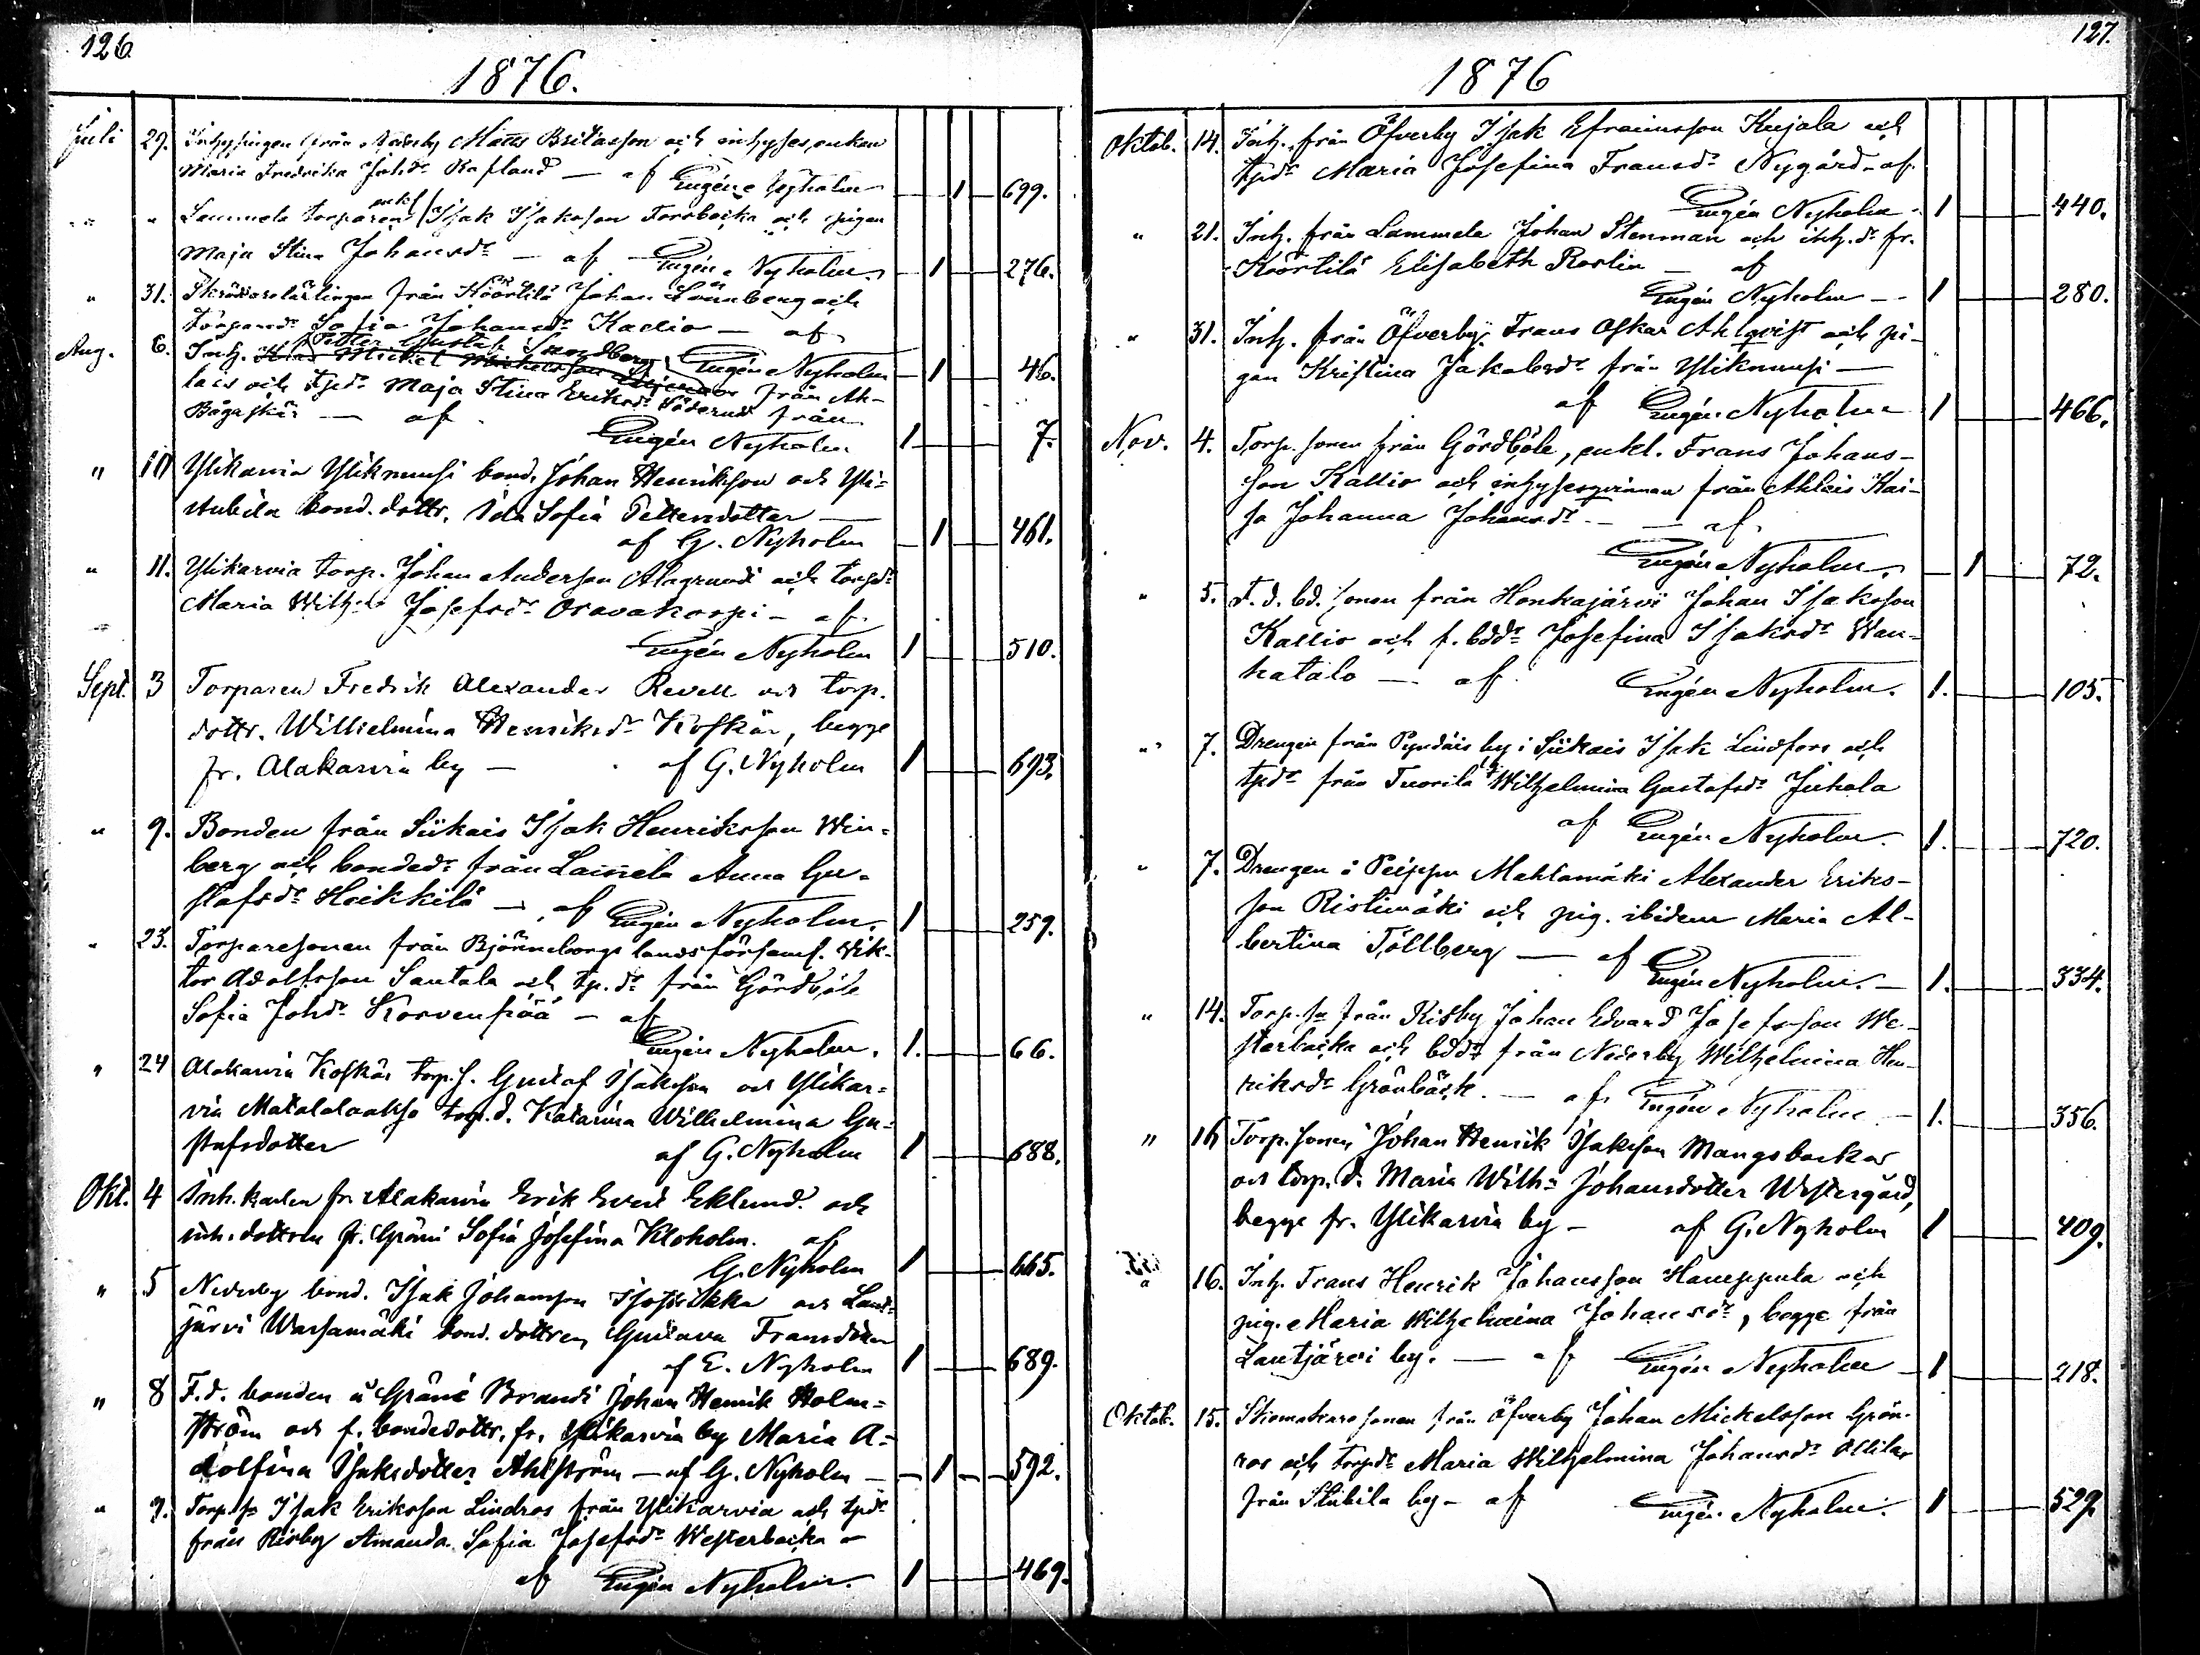 126.
1876.
Juli 29. Inhysingen från Nederby Matts Britasson och inhyses enkan
Maria Fredrika Johdr Rafland — af Eugène Nyholm 1 699.
" " Lammela torparen enkl. Isak Isaksson Forsbacka och pigan
Maja Stina Johansdr — af Eugène Nyholm 1 276.
" 31. Skräddarelärlingen från Köörtilä Johan Lönnberg och
torparedr Sofia Johansdr Kallio — af
Eugèn Nyholm 1 46.
Aug. 6. Inh. Petter Gustaf Sundberg från Ah-
lais och tpdr Maja Stina Eriksdr Söderlund från
Bågaskär — af Eugén Nyholm 1 7.
" 10 Ylikarvia Yliknuusi bond. Johan Henriksson och Yli-
stubila bond. dottr. Ida Sofia Pettersdotter —
af G. Nyholm 1 461.
" 11. Ylikarvia torp. Johan Andersson Alagrundi och torpdr
Maria Wilh-a Josefsdr Oravakoski — af
Eugén Nyholm 1 510.
Sept. 3 Torparen Fredrik Alexander Revell och torp.
dottr. Wilhelmina Henriksdr Koskär, begge
fr. Alakarvia by — af G. Nyholm 1 693.
" 9. Bonden från Siikais Isak Henriksson Win-
berg och bondedr från Lassela Anna Gu-
stafsdr Heikkilä — af Eugén Nyholm. 1 259.
" 23. Torparesonen från Björneborgs landsförsaml. Wik-
tor Adolfsson Santala och tp.dr från Gårdböle
Sofia Johdr Korvenpää — af
Eugén Nyholm. 1. 66.
" 24 Alakarvia Koskär torp.s. Gustaf Isaksson och Ylikar-
via Matalalaakso torp.d. Katarina Wilhelmina Gu-
stafsdotter af G. Nyholm 1 688.
Okt. 4 Inh. karlen fr. Alakarvia Erik Evert Eklund och
inh. dottren fr. Gräni Sofia Josefina Kloholm. af
G. Nyholm 1 665.
" 5 Nederby bond. Isak Johansson och Lant-
järvi Warsamäki bond. dottren Gustava Fransdotter
af E. Nyholm 1 689.
" 8 F.d. bonden å Gräni Brandt Johan Henrik Holm-
ström och f. bondedottr. fr. Ylikarvia by Maria A-
dolfina Isaksdotter Ahlström — af G. Nyholm — 1 592.
" 9. Torp.sn Isak Eriksson Lindros från Ylikarvia och tpdr
från Risby Amanda Sofia Josefsdr Westerbacka —
af Eugén Nyholm. 1 469.
127.
1876
Oktob. 14. Inh. från Öfverby Isak Efraimsson Kujala och
tpdr Maria Josefina Fransdr Nygård — af
Eugén Nyholm 1 440.
" 21. Inh. från Lammela Johan Stenman och inh.dr fr.
Köörtilä Elisabeth Roslin — af
Eugén Nyholm — 1 280.
" 31. Inh. från Öfverby Frans Oskar Ahlqvist och pi-
gan Kristina Jakobsdr från Yliknuusi —
af Eugén Nyholm 1 466.
Nov. 4. Torp.sonen från Gårdböle, enkl. Frans Johans-
son Kallio och inhysesqvinnan från Ahlais Kai-
sa Johanna Johansdr — af
Eugén Nyholm. 1 72.
" 5. F.d. bd.sonen från Honkajärvi Johan Isaksson
Kallio och f. bddr Josefina Isaksdr Wan-
hatalo — af Eugén Nyholm. 1. 105.
" 7. Drengen från by i Siikais Isak Lindfors och
tpdr från Tuorila by Wilhelmina Gustafsdr Juhola
af Eugén Nyholm. 1. 720.
" 7. Drengen å Peippu Mahlamäki Alexander Eriks-
son Ristimäki och pig. ibidem Maria Al-
bertina Töllberg — af
Eugén Nyholm. — 1. 334.
" 14. Torp.sn från Risby Johan Edvard Josefsson We-
sterbacka och bddr från Nederby Wilhelmina Hen-
riksdr Grönbäck. — af Eugén Nyholm — 1. 356.
" 16 Torp.sonen Johan Henrik Isaksson Mangsbacka
och torp.d. Maria Wilh-a Johansdotter Westergård,
begge fr. Ylikarvia by — af G. Nyholm 1 409.
" 16. Inh. Frans Henrik Johansson och
pig. Maria Wilhelmina Johansdr, begge från
Lantjärvi by. — af Eugén Nyholm 1 218.
Oktob. 15. Skomakaresonen från Öfverby Johan Mickelsson Grön-
ros och torpdr Maria Wilhelmina Johansdr
från Stubila by — af Eugén Nyholm. 1 529